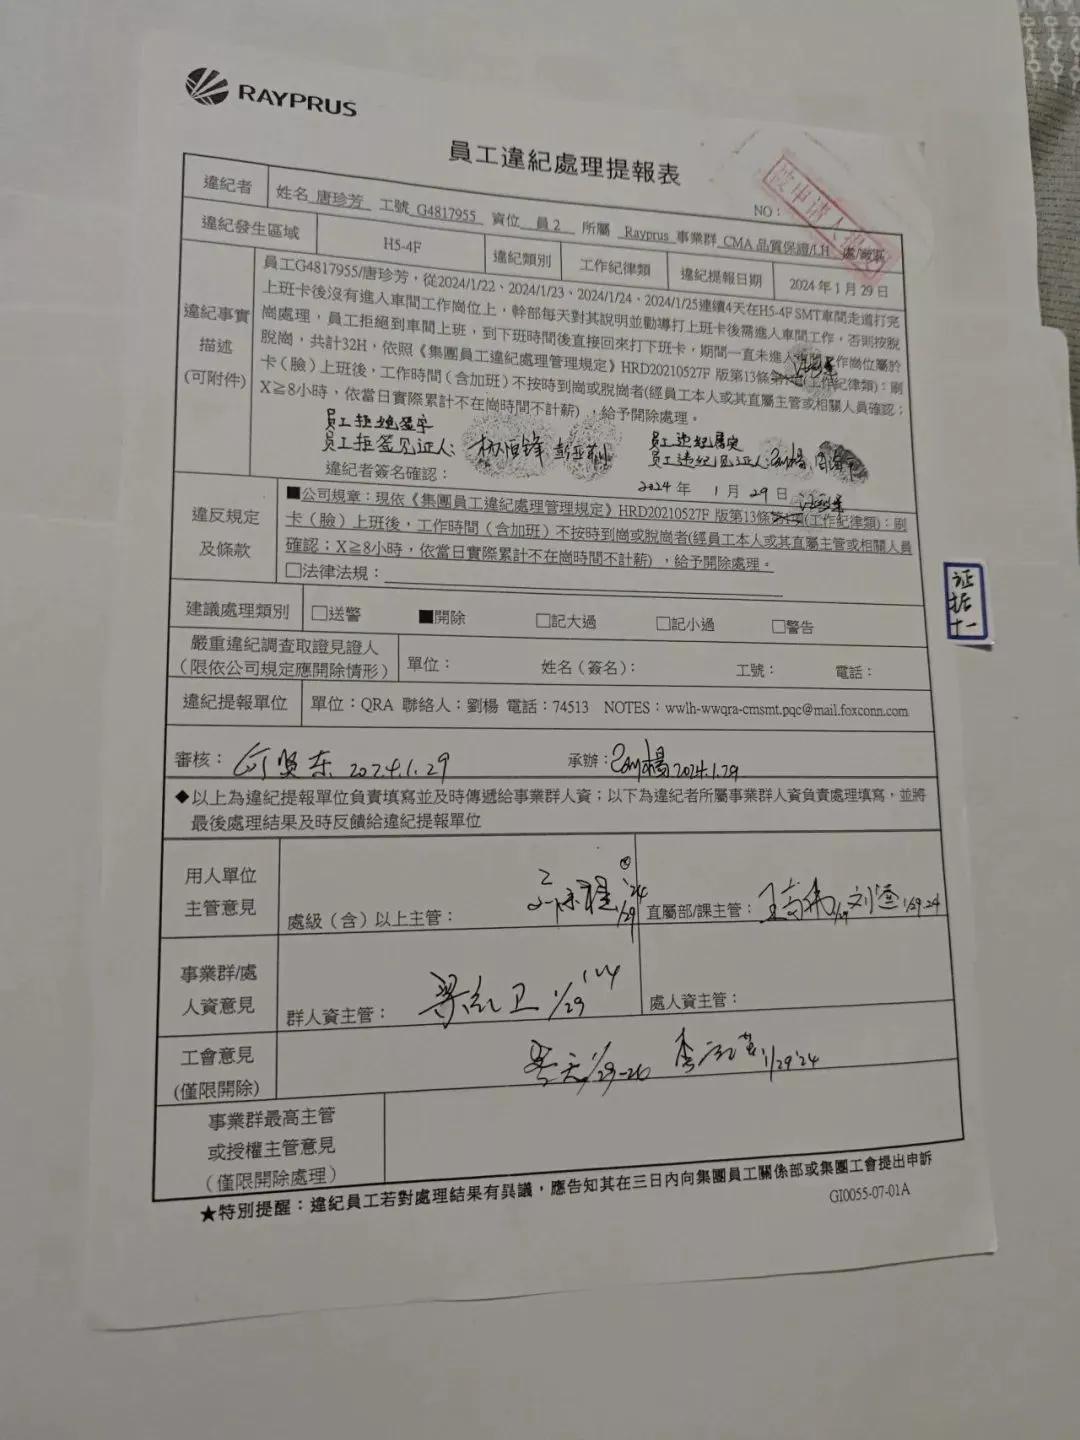 RAYPRUS
員工違紀處理提報表
被申请人提交
NO：
違紀者 姓名 唐珍芳 工號 G4817955 資位 員2 所屬 Rayprus 事業群 CMA 品質保證/LH 處/廠區
違紀發生區域 H5-4F 違紀類別 工作紀律類 違紀提報日期 2024年1月29日
違紀事實
描述
(可附件)
員工G4817955/唐珍芳，從2024/1/22、2024/1/23、2024/1/24、2024/1/25連續4天在H5-4F SMT車間走道打完
上班卡後沒有進入車間工作崗位上，幹部每天對其說明並勸導打上班卡後需進入車間工作，否則按脫
崗處理，員工拒絕到車間上班，到下班時間後直接回來打下班卡，期間一直未進入車間工作崗位屬於
脫崗，共計32H，依照《集團員工違紀處理管理規定》HRD20210527F 版第13條(工作紀律類)：刷
卡（臉）上班後，工作時間（含加班）不按時到崗或脫崗者(經員工本人或其直屬主管或相關人員確認；
X≧8小時，依當日實際累計不在崗時間不計薪)，給予開除處理。
員工拒絕签字
員工拒签见证人： 杨恒锋 彭亚莉
員工违纪属实
員工违纪见证人: 刘楊
違紀者簽名確認：
2024 年 1 月 29 日
違反規定
及條款
■公司規章：現依《集團員工違紀處理管理規定》HRD20210527F 版第13條(工作紀律類)：刷
卡（臉）上班後，工作時間（含加班）不按時到崗或脫崗者(經員工本人或其直屬主管或相關人員
確認；X≧8小時，依當日實際累計不在崗時間不計薪)，給予開除處理。
□法律法規：
建議處理類別 □送警 ■開除 □記大過 □記小過 □警告
嚴重違紀調查取證見證人
（限依公司規定應開除情形） 單位： 姓名（簽名）： 工號： 電話：
違紀提報單位 單位：QRA 聯絡人：劉楊 電話：74513 NOTES：wwlh-wwqra-cmsmt.pqc@mail.foxconn.com
審核： 何贤东 2024.1.29 承辦： 刘楊 2024.1.29
◆以上為違紀提報單位負責填寫並及時傳遞給事業群人資；以下為違紀者所屬事業群人資負責處理填寫，並將
最後處理結果及時反饋給違紀提報單位
用人單位
主管意見
處級（含）以上主管： 1/29 '24
直屬部/課主管： 1/29 1/29.24
事業群/處
人資意見
群人資主管： 梁红卫 1/29 '24
處人資主管：
工會意見
(僅限開除)
1/29 '24
事業群最高主管
或授權主管意見
（僅限開除處理）
★特別提醒：違紀員工若對處理結果有異議，應告知其在三日內向集團員工關係部或集團工會提出申訴
GI0055-07-01A
证
据
十一